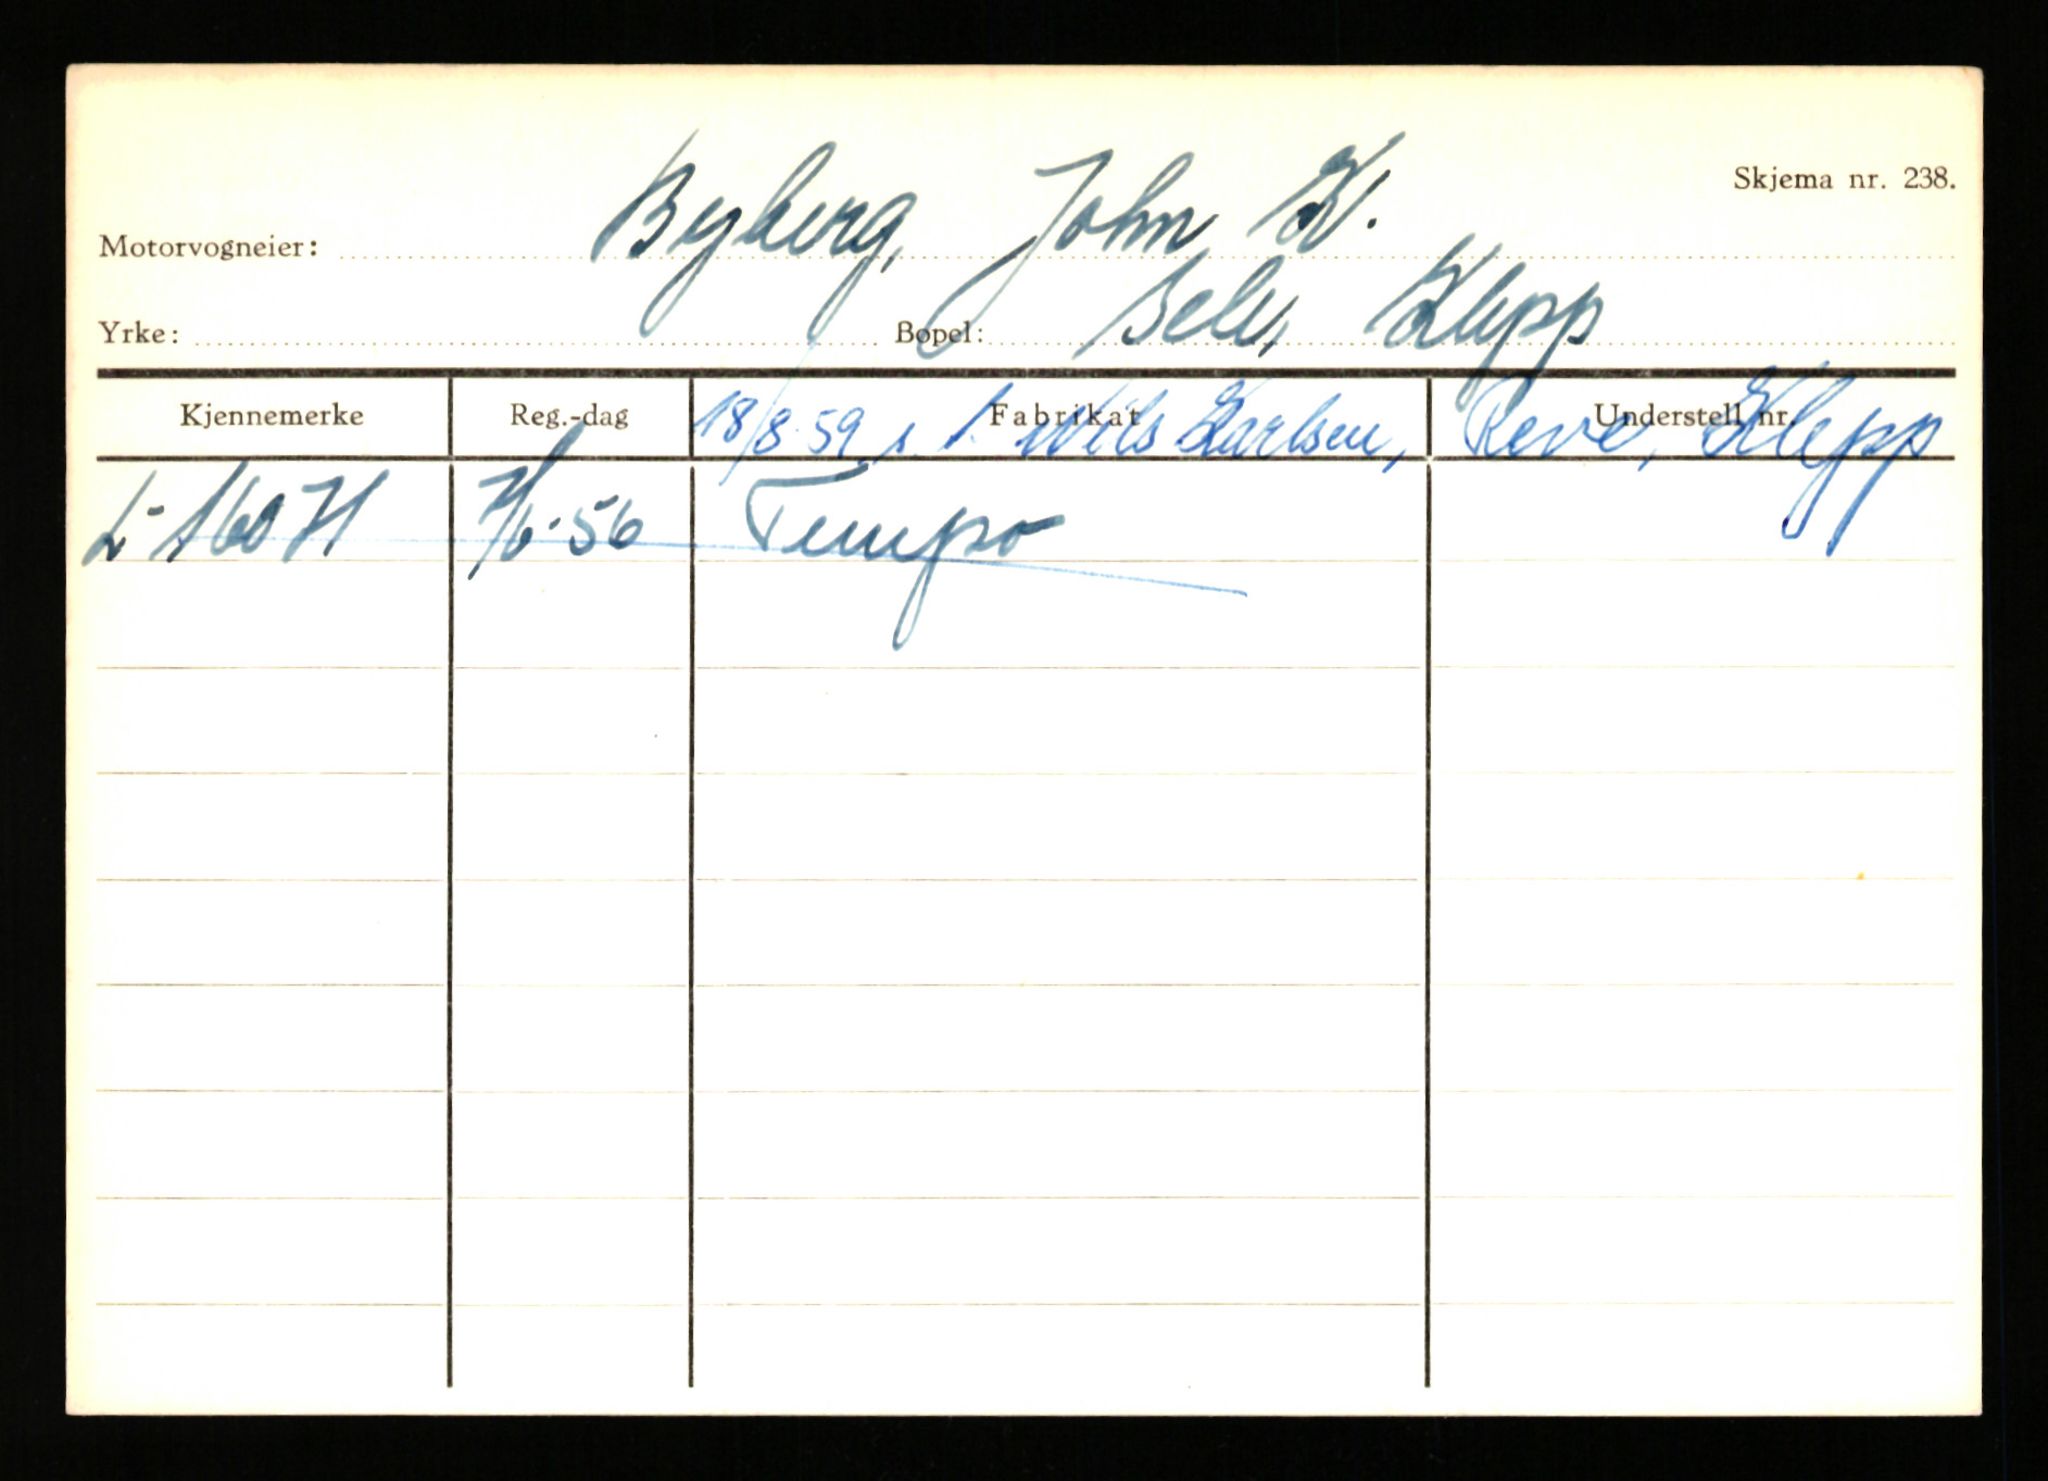 Skjema nr. 238.
Motorvogneier: Byberg, John K.
Yrke: Bopel: Sele, Klepp
Kjennemerke Reg.-dag Fabrikat Understell nr.
18/8-59 s. t. Nils Karlsen, Reve, Klepp
L-16071 7/6-56 Tempo